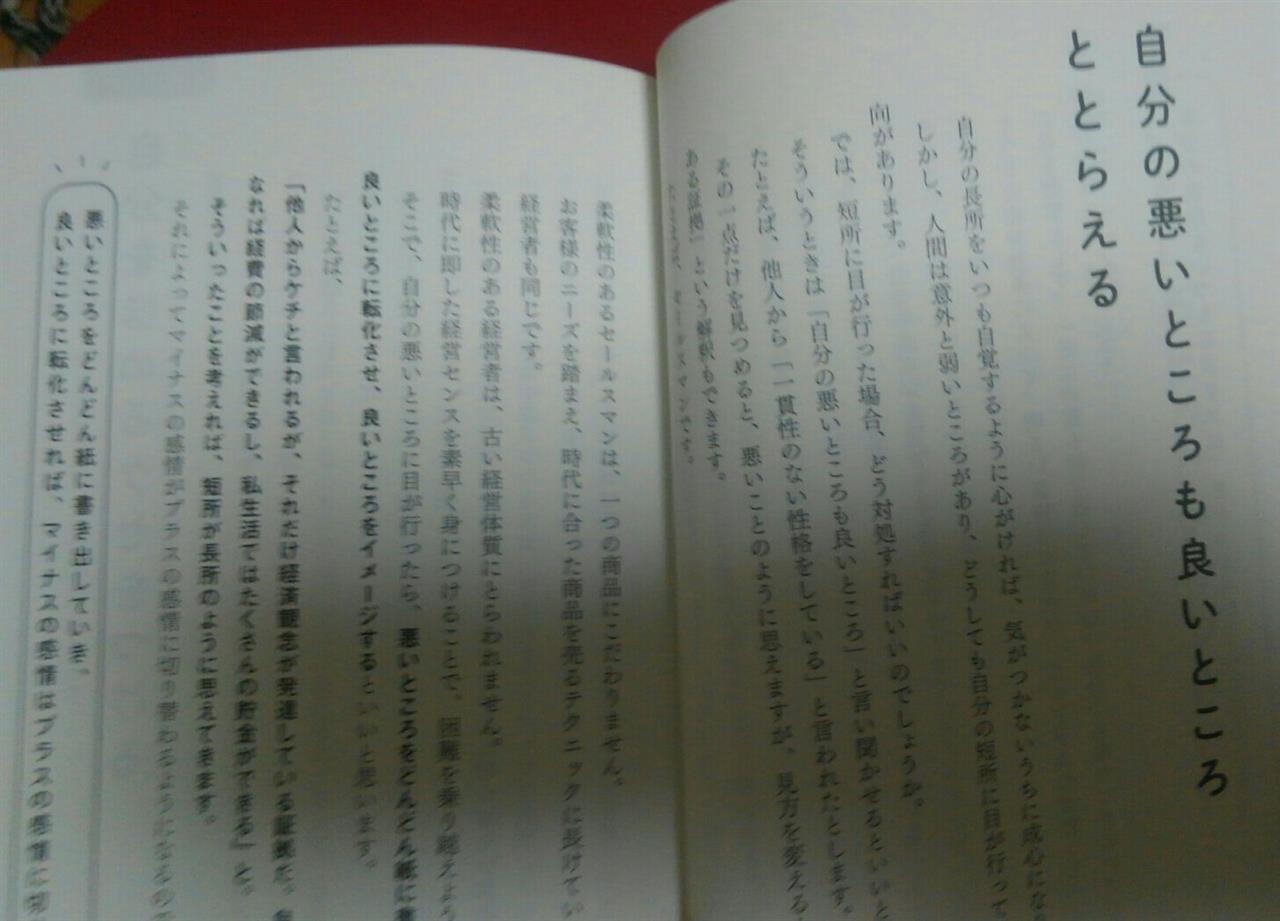 自分の悪いところも良いところ
ととらえる
自分の長所をいつも自覚するように心がければ、気がつかないうちに
しかし、人間は意外と弱いところがあり、どうしても自分の短所に目が行って
向があります。
では、短所に目が行った場合、どう対処すればいいのでしょうか。
そういうときは「自分の悪いところも良いところ」と言い聞かせるといいと
たとえば、他人から「一貫性のない性格をしている」と言われたとします。
その一点だけを見つめると、悪いことのように思えますが、見方を変える
ある証拠」という解釈もできます。
セールスマンです。
柔軟性のあるセールスマンは、一つの商品にこだわりません。
お客様のニーズを踏まえ、時代に合った商品を売るテクニックに長けてい
経営者も同じです。
柔軟性のある経営者は、古い経営体質にとらわれません。
時代に即した経営センスを素早く身につけることで、困難を乗り越えよう
そこで、自分の悪いところに目が行ったら、悪いところをどんどん紙に書
良いところに転化させ、良いところをイメージするといいと思います。
たとえば、
「他人からケチと言われるが、それだけ経済観念が発達している証拠だ。
なれば経費の節減ができるし、私生活ではたくさんの貯金ができる」と。
そういったことを考えれば、短所が長所のように思えてきます。
それによってマイナスの感情がプラスの感情に切り替わるようになるので
悪いところをどんどん紙に書き出していき、
良いところに転化させれば、マイナスの感情はプラスの感情に切